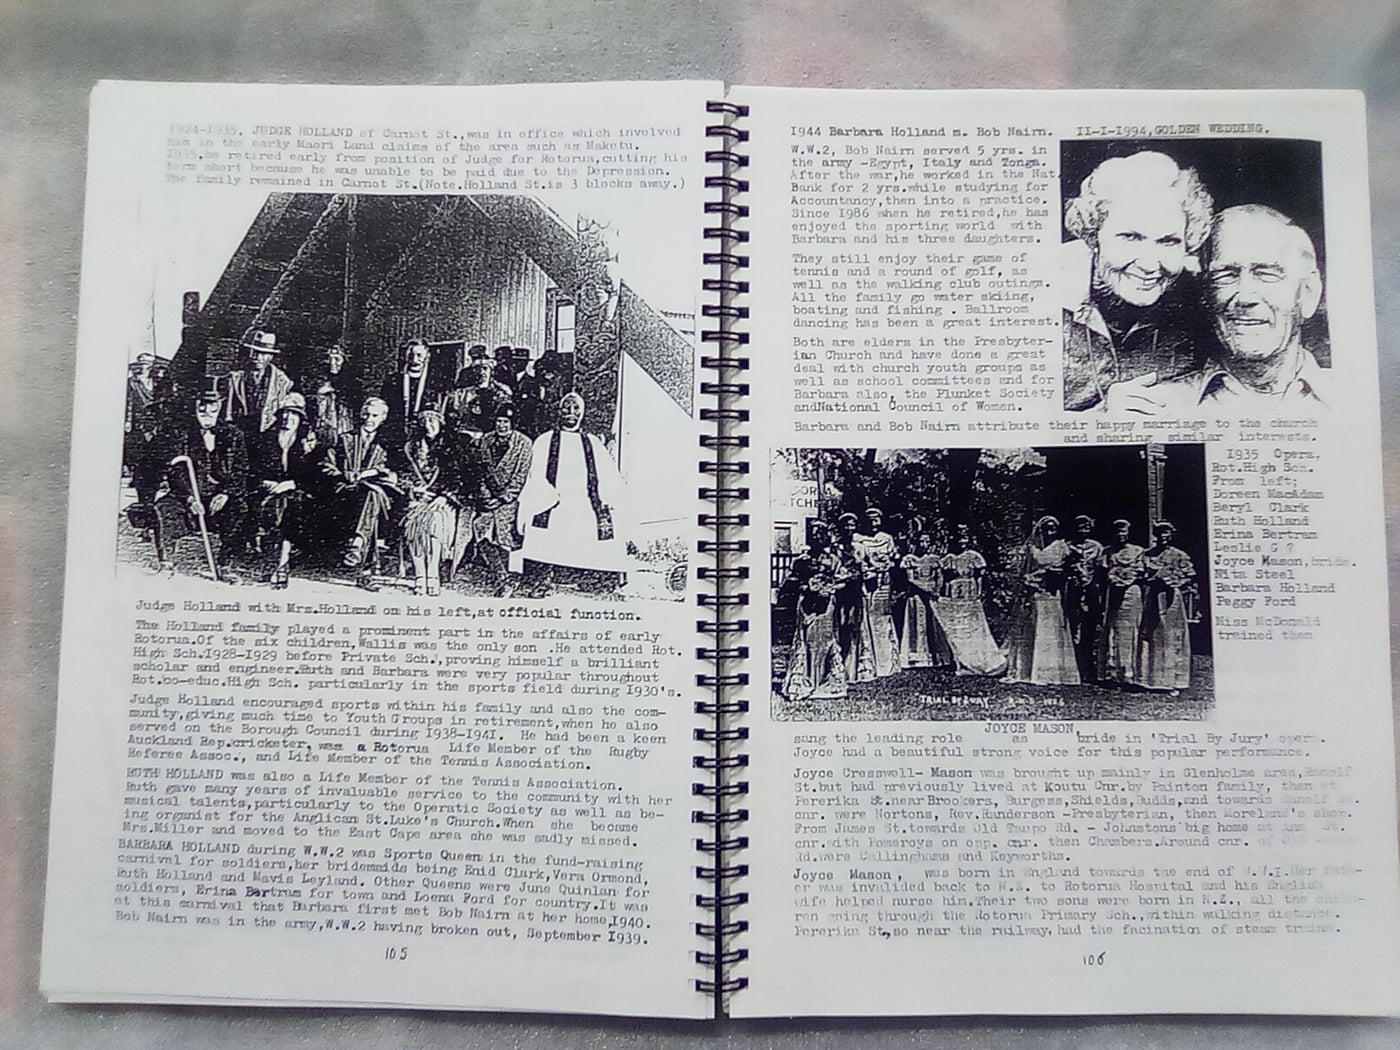 1924-1935. JUDGE HOLLAND of Carnot St.,was in office which involved
him in the early Maori Land claims of the area such as Maketu.
1935,he retired early from position of Judge for Rotorua,cutting his
term short because he was unable to be paid due to the Depression.
The family remained in Carnot St.(Note.Holland St.is 3 blocks away.)
Judge Holland with Mrs.Holland on his left,at official function.
The Holland family played a prominent part in the affairs of early
Rotorua.Of the six children,Wallis was the only son .He attended Rot.
High Sch.1928-1929 before Private Sch.,proving himself a brilliant
scholar and engineer.Ruth and Barbara were very popular throughout
Rot.co-educ.High Sch. particularly in the sports field during 1930's.
Judge Holland encouraged sports within his family and also the com-
munity,giving much time to Youth Groups in retirement,when he also
served on the Borough Council during 1938-1941. He had been a keen
Auckland Rep.cricketer, was a Rotorua Life Member of the Rugby
Referee Assoc., and Life Member of the Tennis Association.
RUTH HOLLAND was also a Life Member of the Tennis Association.
Ruth gave many years of invaluable service to the community with her
musical talents,particularly to the Operatic Society as well as be-
ing organist for the Anglican St.Luke's Church.When she became
Mrs.Miller and moved to the East Cape area she was sadly missed.
BARBARA HOLLAND during W.W.2 was Sports Queen in the fund-raising
carnival for soldiers,her bridemaids being Enid Clark,Vera Ormond,
Ruth Holland and Mavis Leyland. Other Queens were June Quinlan for
soldiers, Erina Bertram for town and Loena Ford for country.It was
at this carnival that Barbara first met Bob Nairn at her home,1940.
Bob Nairn was in the army,W.W.2 having broken out, September 1939.
105
1944 Barbara Holland m. Bob Nairn. II-I-1994,GOLDEN WEDDING.
W.W.2, Bob Nairn served 5 yrs. in
the army -Egypt, Italy and Tonga.
After the war,he worked in the Nat.
Bank for 2 yrs.while studying for
Accountancy,then into a practice.
Since 1986 when he retired,he has
enjoyed the sporting world with
Barbara and his three daughters.
They still enjoy their game of
tennis and a round of golf, as
well as the walking club outings.
All the family go water skiing,
boating and fishing . Ballroom
dancing has been a great interest.
Both are elders in the Presbyter-
ian Church and have done a great
deal with church youth groups as
well as school committees and for
Barbara also, the Plunket Society
andNational Council of Women.
Barbara and Bob Nairn attribute their happy marriage to the church
and sharing similar interests.
1935 Opera,
Rot.High Sch.
From left;
Doreen MacAdam
Beryl Clark
Ruth Holland
Erina Bertram
Leslie G ?
Joyce Mason,bride.
Nita Steel
Barbara Holland
Peggy Ford
Miss McDonald
trained them
TRIAL BY JURY
JOYCE MASON,
sang the leading role as bride in 'Trial By Jury' opera.
Joyce had a beautiful strong voice for this popular performance.
Joyce Cresswell- Mason was brought up mainly in Glenholme area,
St.but had previously lived at Koutu Cnr.by Painton family, then at
Pererika St.near Brookers, Burgess,Shields,Budds,and towards
cnr. were Nortons, Rev.Randerson -Presbyterian, then Moreland's shop.
From James St.towards Old Taupo Rd. - Johnstons'big home at
cnr.with Pomeroys on opp. cnr. then Chambers.Around cnr. of Old
Rd.were Callinghams and Keyworths.
Joyce Mason, was born in England towards the end of W.W.I.Her fath-
er was invalided back to N.Z. to Rotorua Hospital and his English
wife helped nurse him.Their two sons were born in N.Z., all the child-
ren going through the Rotorua Primary Sch.,within walking distance.
Pererika St,so near the railway,had the facination of steam trains.
106